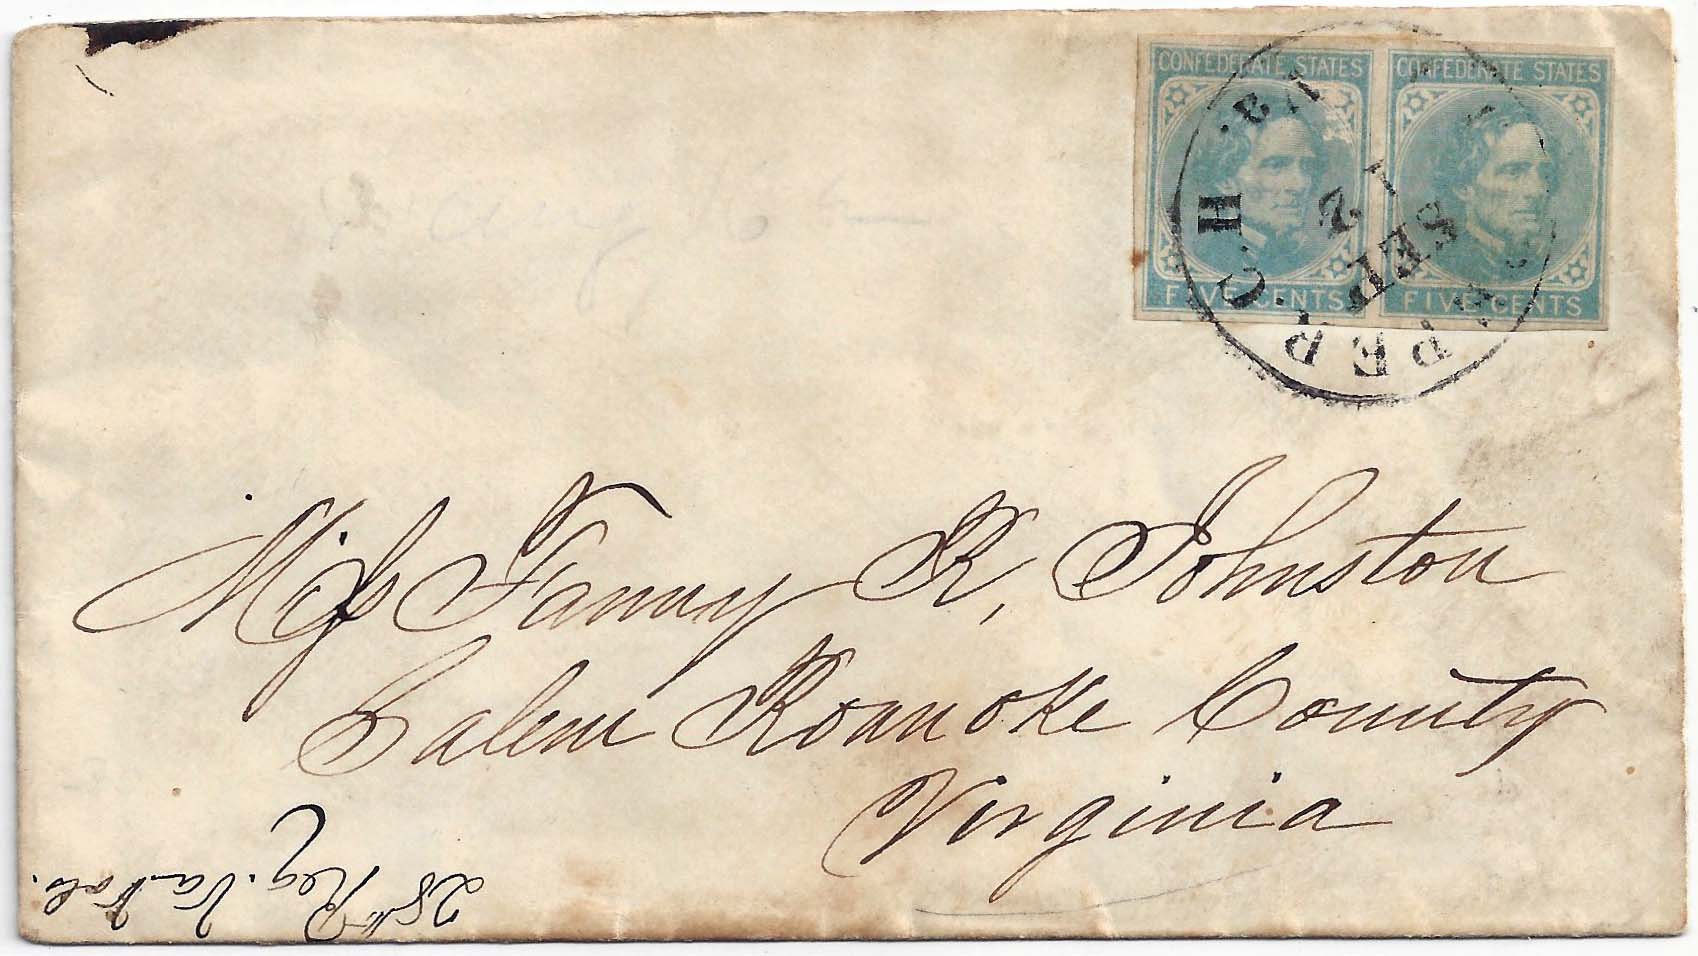 CONFEDERATE STATES CONFEDERATE STATES
FIVE CENTS FIVE CENTS
CULPEPER C.H. Va.
SEP
12
Miss Fanny K, Johnston
Salem Roanoke County
Virginia
28th Reg. Va. Vols.